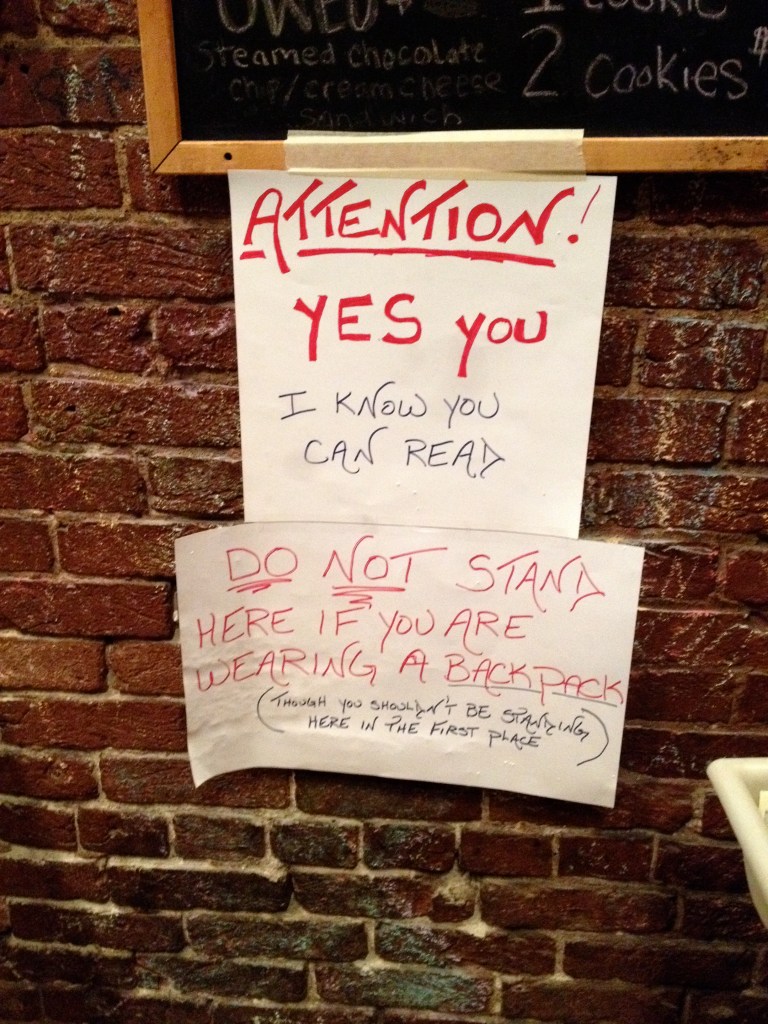 1 cookie
Steamed chocolate
2 cookies $
chip/cream cheese
sandwich
ATTENTION!
YES YOU
I KNOW YOU
CAN READ
DO NOT STAND
HERE IF YOU ARE
WEARING A BACKPACK
(THOUGH YOU SHOULDN'T BE STANDING
HERE IN THE FIRST PLACE)